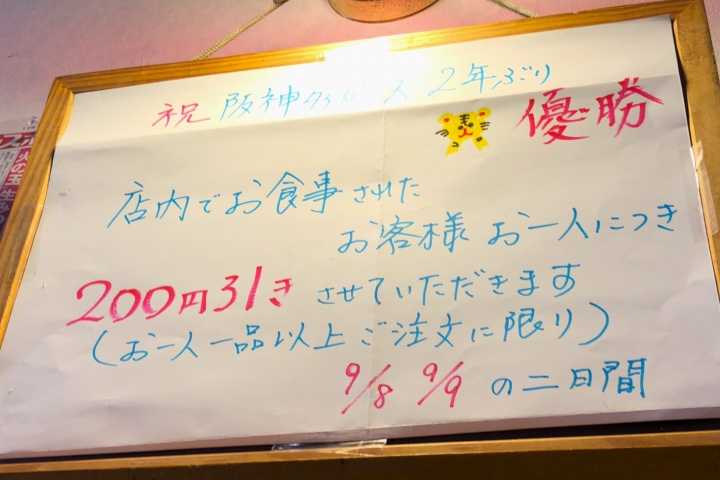 祝 阪神タイガース 2年ぶり
優勝
店内でお食事された
お客様 お一人につき
200円引き させていただきます
(お一人一品以上 ご注文に限り)
9/8 9/9 の二日間
火の玉